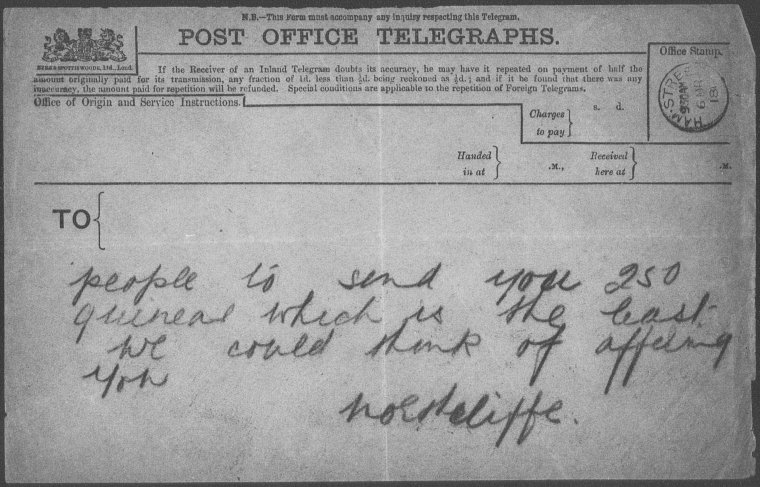 N.B.—This Form must accompany any inquiry respecting this Telegram.
POST OFFICE TELEGRAPHS.
Office Stamp.
If the Receiver of an Inland Telegram doubts its accuracy, he may have it repeated on payment of half the
amount originally paid for its transmission, any fraction of 1d. less than ½d. being reckoned as ½d.; and if it be found that there was any
inaccuracy, the amount paid for repetition will be refunded. Special conditions are applicable to the repetition of Foreign Telegrams.
Office of Origin and Service Instructions.
s. d.
Charges
to pay
Handed
in at
.M.,
Received
here at
.M.
TO
people to send you 250
guineas which is the least
we could think of offering
you
Northcliffe.